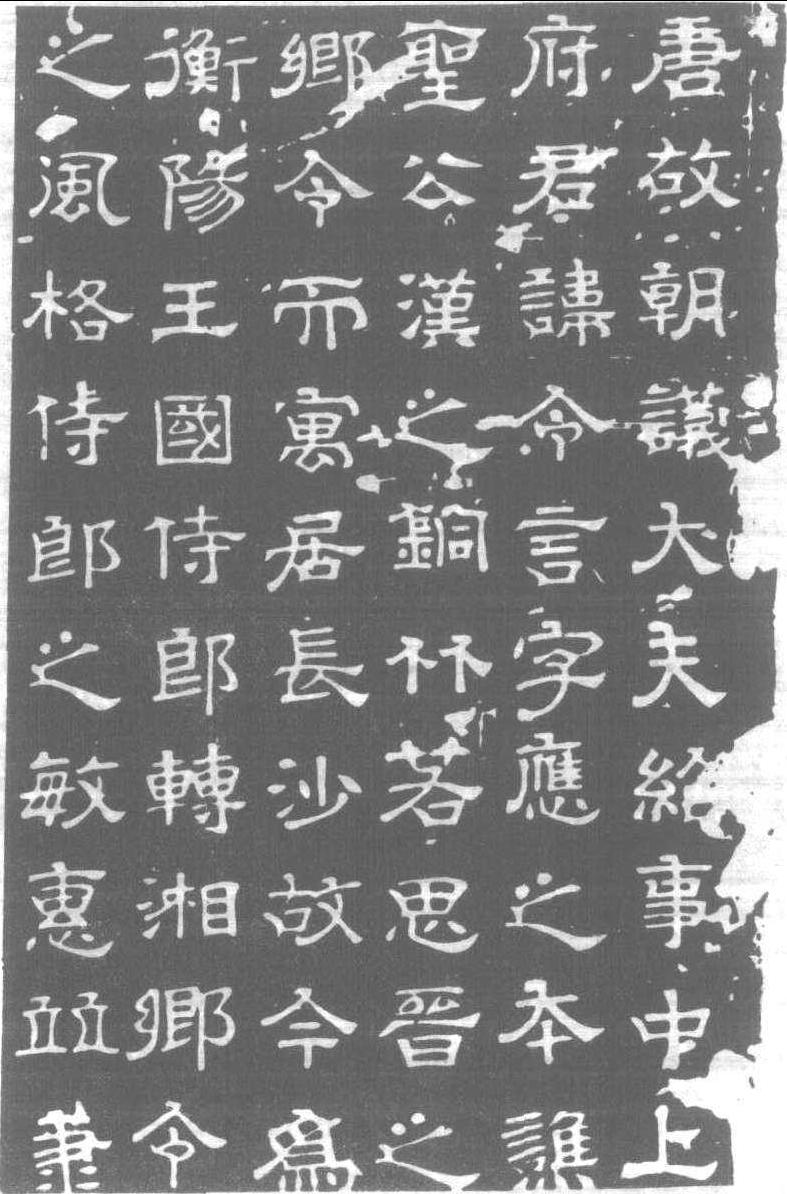 唐故朝議大夫給事中上
府君諱令言字應之本譙
聖公漢之銅竹若思晉之
鄉令而寓居長沙故今爲
衡陽王國侍郎轉湘鄉令
之風格侍郎之敏惠並兼